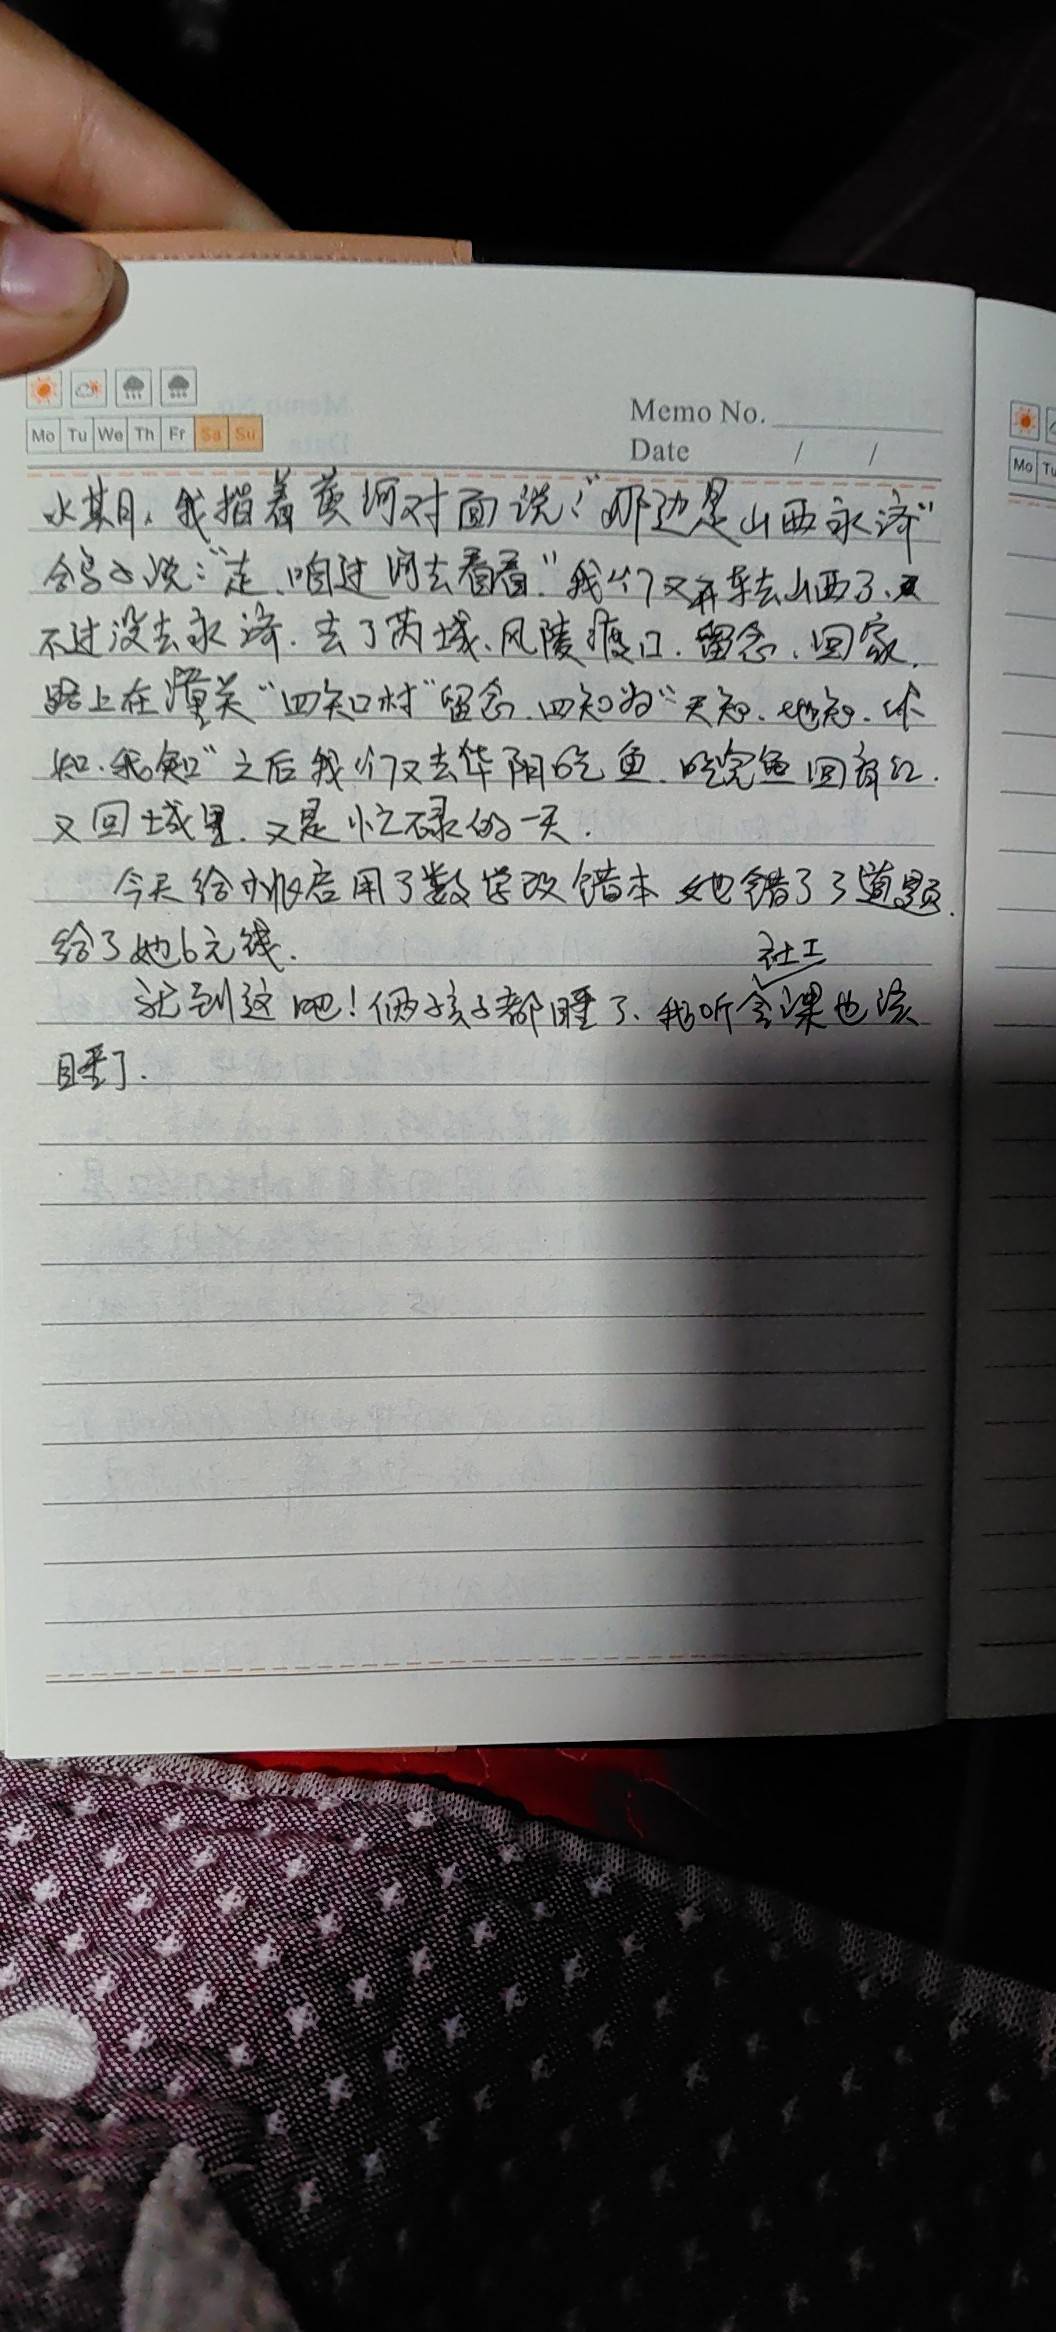 Memo No.
Mo Tu We Th Fr Sa Su
Date / /
Mo Tu
我指着黄河对面说:"那边是山西永济"
说:"走、咱过河去看看."我们又开车去山西了、
不过没去永济.去了芮城、风陵渡口.留念、回家.
路上在潼关"四知村"留念.四知为"天知、地知、你
知、我知"之后我们又去华阴吃鱼.吃完鱼回
又回城里.又是忙碌的一天.
今天给 启用了数学改错本 她错了3道题.
给了她6元钱.
社工
就到这吧!俩孩子都睡了、我听会课也该
睡了.